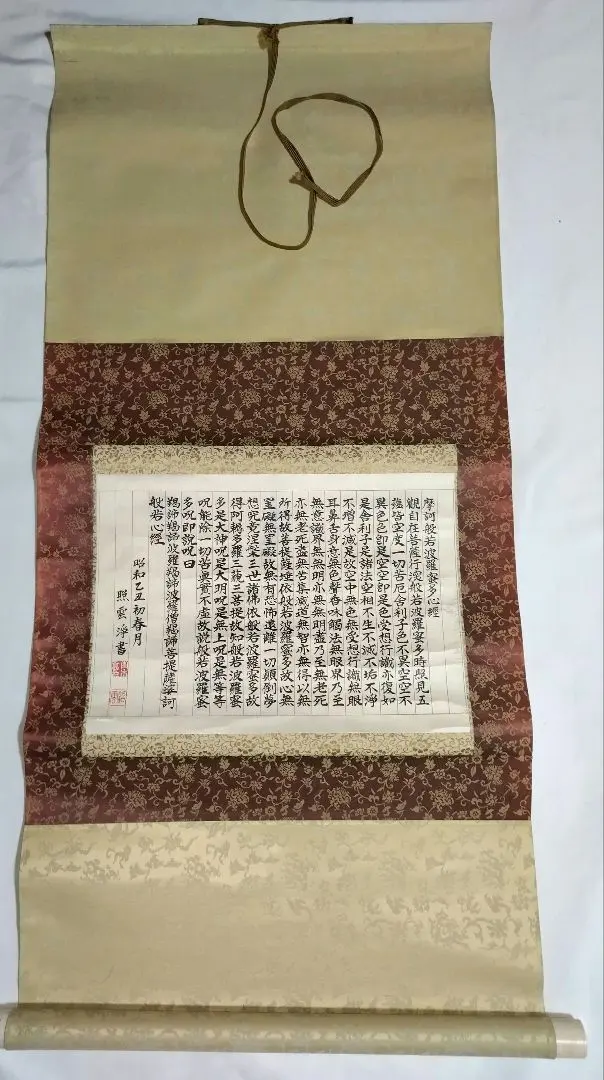 摩訶般若波羅蜜多心經
觀自在菩薩行深般若波羅蜜多時照見五
蘊皆空度一切苦厄舍利子色不異空空不
異色色即是空空即是色受想行識亦復如
是舍利子是諸法空相不生不滅不垢不淨
不增不減是故空中無色無受想行識無眼
耳鼻舌身意無色聲香味觸法無眼界乃至
無意識界無無明亦無無明盡乃至無老死
亦無老死盡無苦集滅道無智亦無得以無
所得故菩提薩埵依般若波羅蜜多故心無
罣礙無罣礙故無有恐怖遠離一切顛倒夢
想究竟涅槃三世諸佛依般若波羅蜜多故
得阿耨多羅三藐三菩提故知般若波羅蜜
多是大神呪是大明呪是無上呪是無等等
呪能除一切苦真實不虛故說般若波羅蜜
多呪即說呪曰
羯諦羯諦波羅羯諦波羅僧羯諦菩提薩婆訶
般若心經
昭和乙丑初春月
照雲淨書